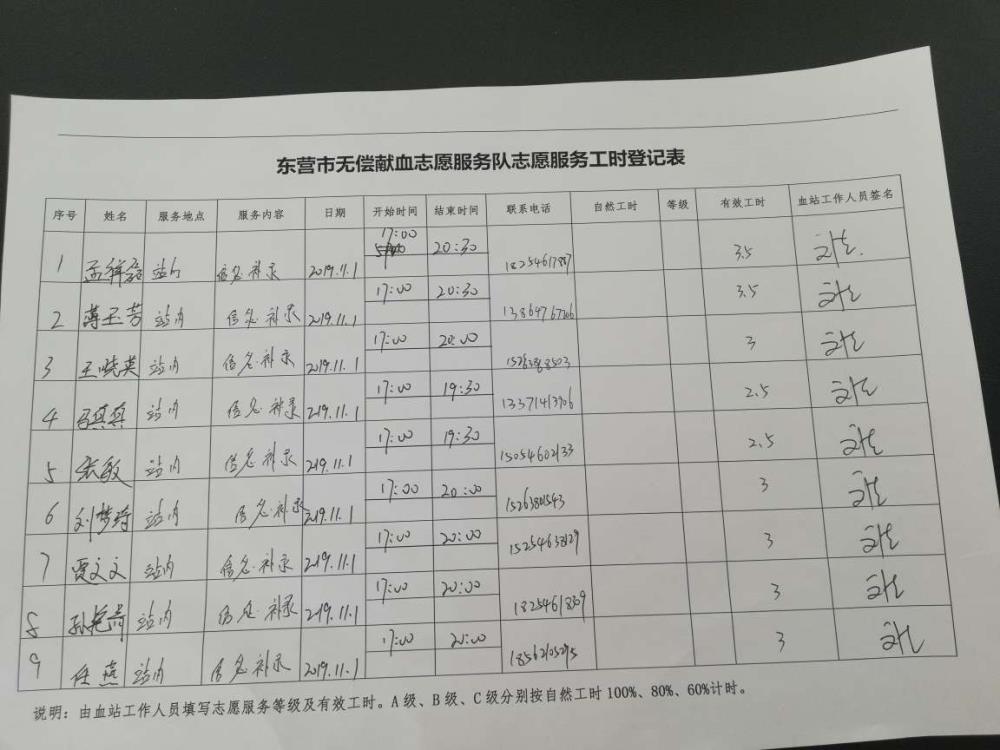 东营市无偿献血志愿服务队志愿服务工时登记表
序号 姓名 服务地点 服务内容 日期 开始时间 结束时间 联系电话 自然工时 等级 有效工时 血站工作人员签名
1 站内 信息补录 2019.11.1 17:00 20:30 3.5
2 薄玉芳 站内 信息补录 2019.11.1 17:00 20:30 3.5
3 王晓英 站内 信息补录 2019.11.1 17:00 20:00 3
4 马真真 站内 信息补录 2019.11.1 17:00 19:30 13371413906 2.5
5 张敏 站内 信息补录 2019.11.1 17:00 19:30 15054602133 2.5
6 刘梦琦 站内 信息补录 2019.11.1 17:00 20:00 15263801543 3
7 贾文文 站内 信息补录 2019.11.1 17:00 20:00 3
8 孙艳荷 站内 信息补录 2019.11.1 17:00 20:00 3
9 任燕 站内 信息补录 2019.11.1 17:00 20:00 18562105295 3
说明：由血站工作人员填写志愿服务等级及有效工时。A级、B级、C级分别按自然工时100%、80%、60%计时。